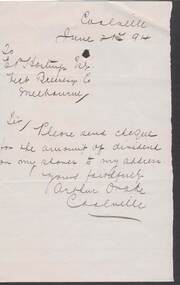 Coalville
June 21st 94
To
Esq.
Melbourne
Sir/ Please send cheque
for the amount of dividend
on my shares to my address
yours faithfully
Arthur Drake
Coalville